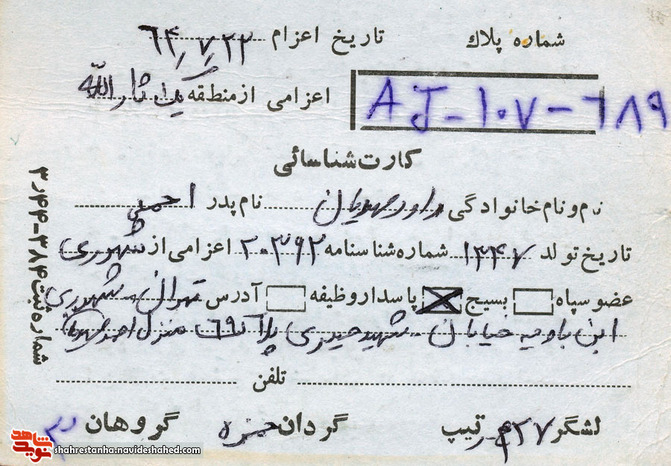 شماره پلاك تاریخ اعزام ۶۴٫۷٫۲۲
AJ-۱۰۷-۶۸۹ اعزامی از منطقه ثار الله
کارت شناسائی
نام و نام خانوادگی داود مهدیان نام پدر احمد
تاریخ تولد ۱۳۴۷ شماره شناسنامه ۲۰۳۹۲ اعزامی از شهرری
عضو سپاه بسیج پاسدار وظیفه آدرس تهران - شهرری
ابن بابویه خیابان شهید حیدری پلاک ۶۹۶ منزل احمد
تلفن
لشگر ۲۷ تیپ گردان حمزه گروهان
شماره ثبت ۳۸۴-۳٫۴۴
نوید شاهد
shahrestanha.navideshahed.com